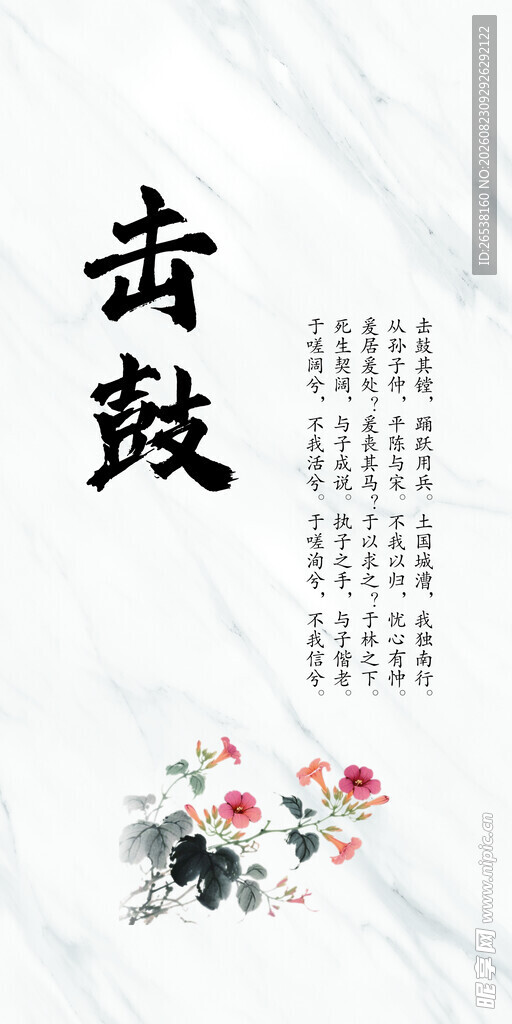 击鼓
击鼓其镗，踊跃用兵。土国城漕，我独南行。
从孙子仲，平陈与宋。不我以归，忧心有忡。
爰居爰处？爰丧其马？于以求之？于林之下。
死生契阔，与子成说。执子之手，与子偕老。
于嗟阔兮，不我活兮。于嗟洵兮，不我信兮。
ID:26538160 NO:20260823092926292122
昵享网 www.nipic.cn